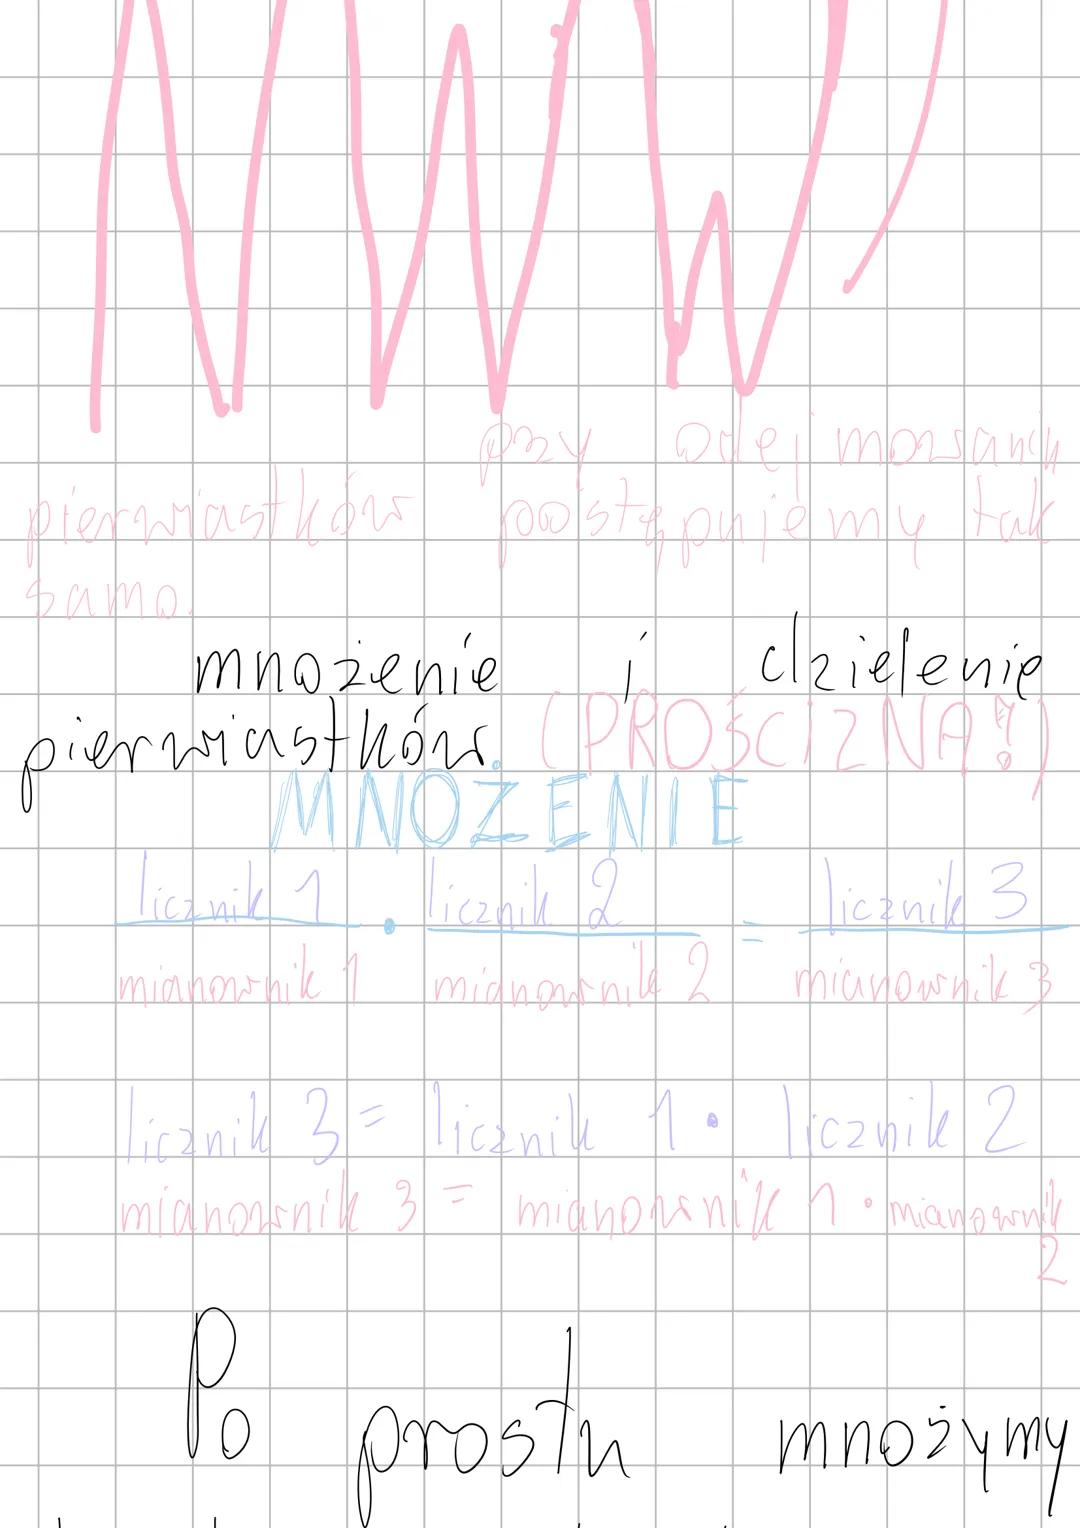 NWW
przy odejmowaniu
pierwiastków postępujemy tak
samo.
mnożenie i dzielenie
pierwiastków. (PROŚCIZNA!)
MNOŻENIE
licznik 1 • licznik 2 = licznik 3
mianownik 1 mianownik 2 mianownik 3
licznik 3 = licznik 1 • licznik 2
mianownik 3 = mianownik 1 • mianownik
2
Po prostu mnożymy